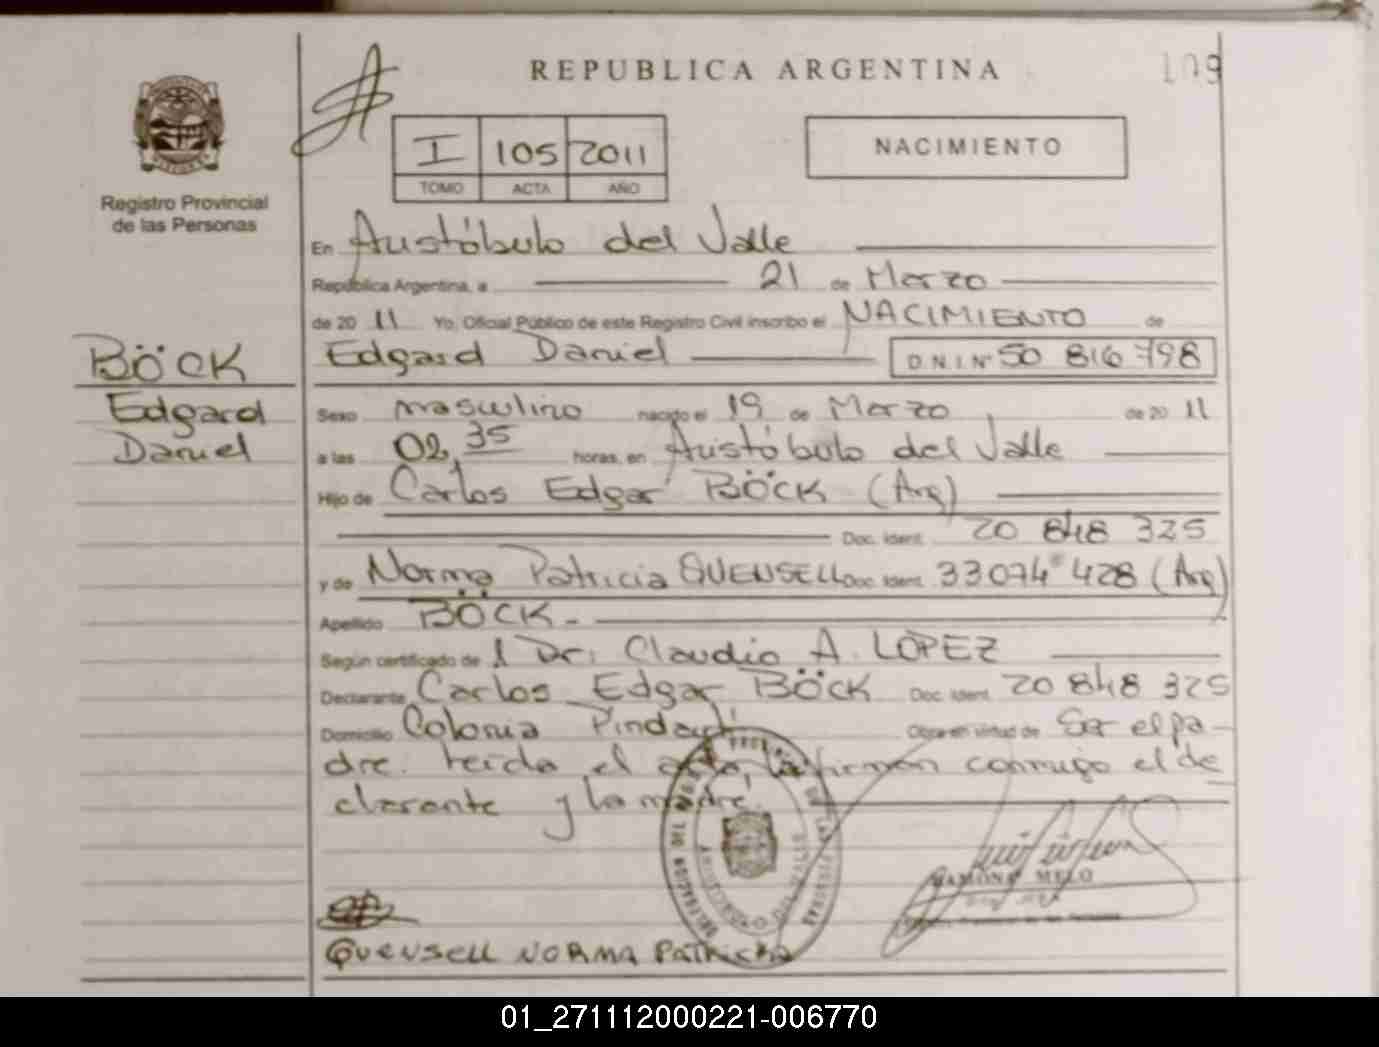 REPUBLICA ARGENTINA
109
I 105 2011
TOMO ACTA AÑO
NACIMIENTO
Registro Provincial
de las Personas
En Aristóbulo del Valle
República Argentina, a 21 de Marzo
de 2011 Yo, Oficial Público de este Registro Civil inscribo el NACIMIENTO de
BÖCK
Edgard
Daniel
Edgard Daniel D.N.I. Nº 50 816 798
Sexo masculino nacido el 19 de Marzo de 2011
a las 02,35 horas, en Aristóbulo del Valle
Hijo de Carlos Edgar BÖCK (Arg)
Doc. Ident. 20 848 325
y de Norma Patricia QUENSELL Doc. Ident. 33074428 (Arg)
Apellido BÖCK.-
Según certificado de Dr. Claudio A. LOPEZ
Declarante Carlos Edgar BÖCK Doc. Ident. 20 848 325
Domicilio Colonia Pindaytí Obra en virtud de Ser el pa-
dre. Leída el acta, la firman conmigo el de
clarante y la madre.
RAMONA MELO
QUENSELL NORMA PATRICIA
01_271112000221-006770